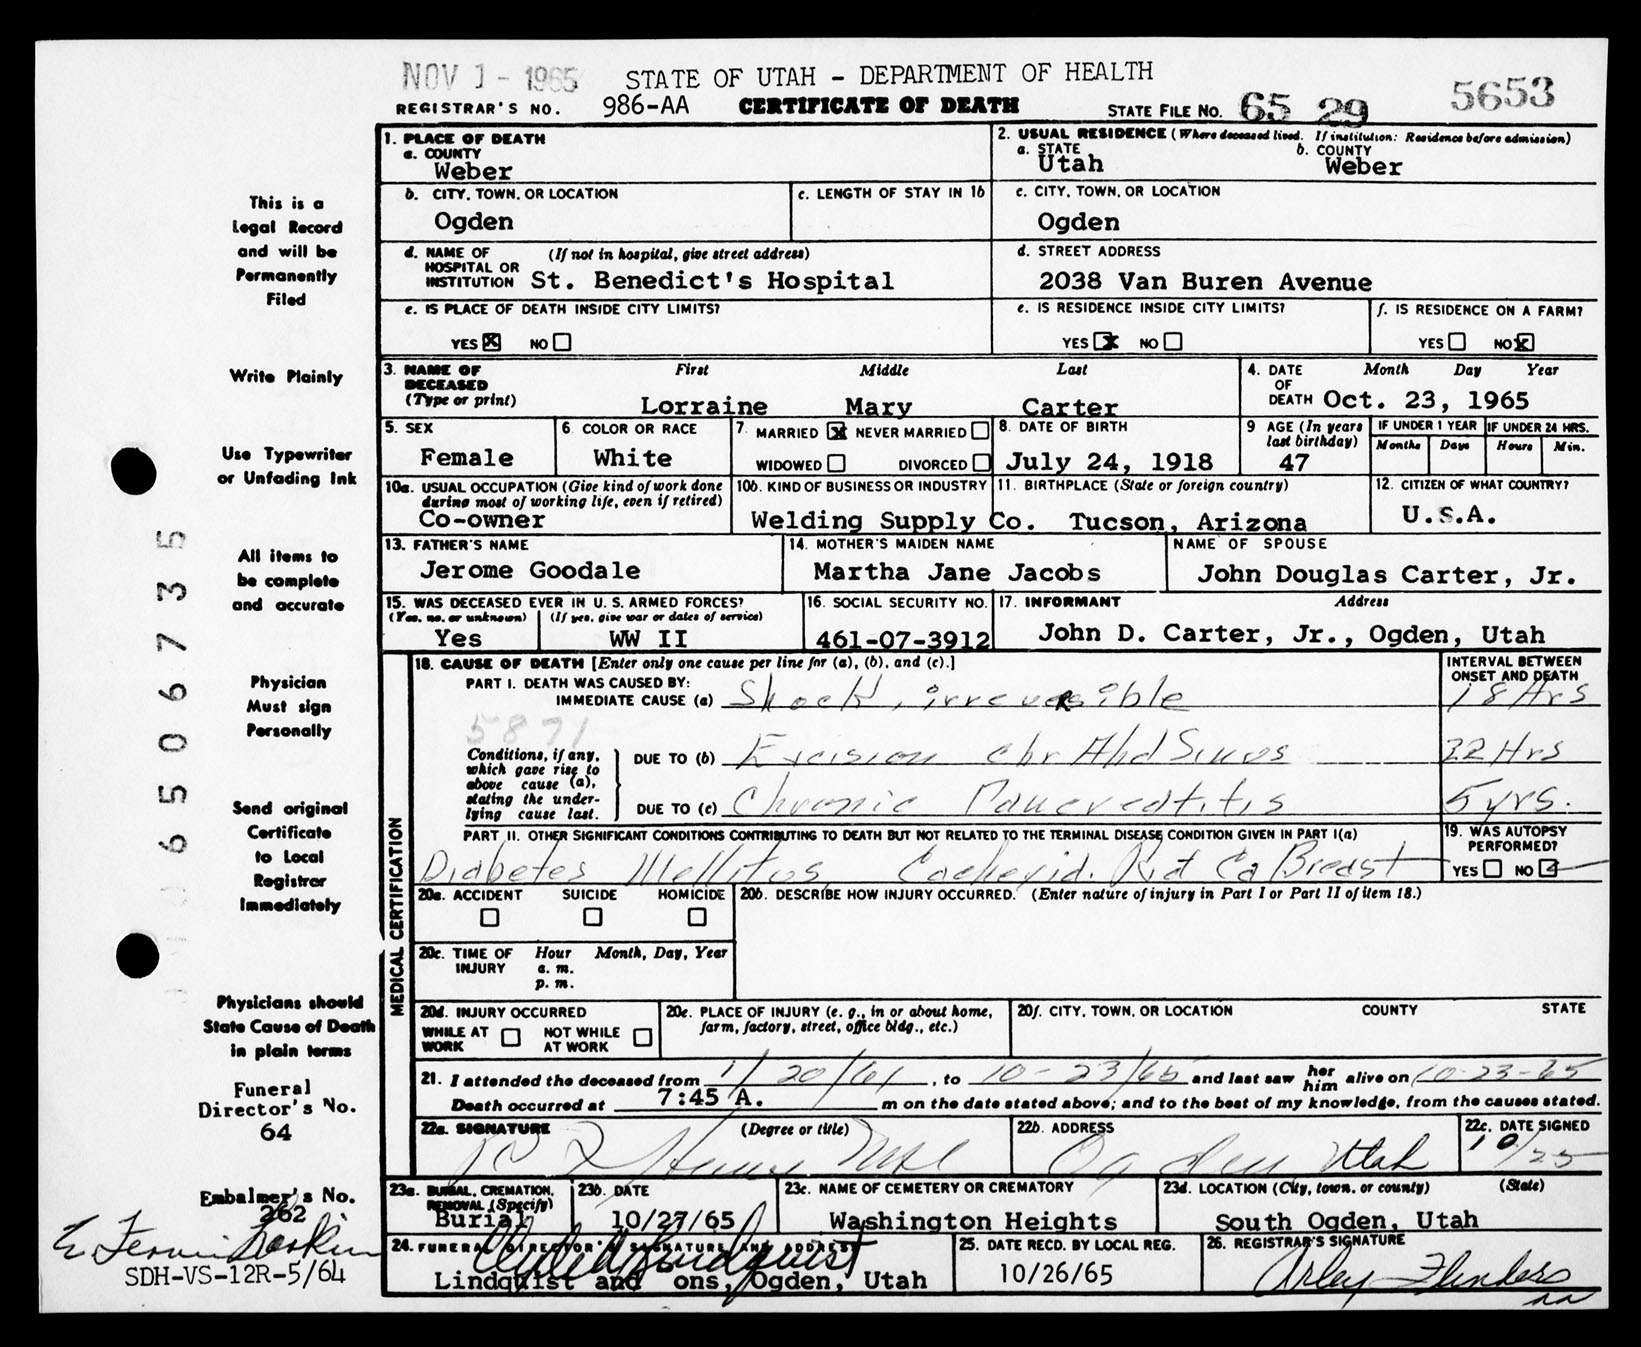 NOV 1 - 1965 STATE OF UTAH - DEPARTMENT OF HEALTH 5653
REGISTRAR'S NO. 986-AA CERTIFICATE OF DEATH STATE FILE NO. 65 29
1. PLACE OF DEATH
a. COUNTY
Weber
2. USUAL RESIDENCE (Where deceased lived. If institution: Residence before admission)
a. STATE b. COUNTY
Utah Weber
b. CITY, TOWN, OR LOCATION
Ogden
c. LENGTH OF STAY IN 1b
c. CITY, TOWN, OR LOCATION
Ogden
d. NAME OF (If not in hospital, give street address)
HOSPITAL OR
INSTITUTION St. Benedict's Hospital
d. STREET ADDRESS
2038 Van Buren Avenue
e. IS PLACE OF DEATH INSIDE CITY LIMITS?
YES X NO
e. IS RESIDENCE INSIDE CITY LIMITS?
YES X NO
f. IS RESIDENCE ON A FARM?
YES NO X
3. NAME OF First Middle Last
DECEASED
(Type or print)
Lorraine Mary Carter
4. DATE Month Day Year
OF
DEATH Oct. 23, 1965
5. SEX
Female
6 COLOR OR RACE
White
7. MARRIED X NEVER MARRIED
WIDOWED DIVORCED
8. DATE OF BIRTH
July 24, 1918
9 AGE (In years
last birthday)
47
IF UNDER 1 YEAR IF UNDER 24 HRS.
Months Days Hours Min.
10a. USUAL OCCUPATION (Give kind of work done
during most of working life, even if retired)
Co-owner
10b. KIND OF BUSINESS OR INDUSTRY
Welding Supply Co.
11. BIRTHPLACE (State or foreign country)
Tucson, Arizona
12. CITIZEN OF WHAT COUNTRY?
U.S.A.
13. FATHER'S NAME
Jerome Goodale
14. MOTHER'S MAIDEN NAME
Martha Jane Jacobs
NAME OF SPOUSE
John Douglas Carter, Jr.
15. WAS DECEASED EVER IN U. S. ARMED FORCES?
(Yes, no, or unknown) (If yes, give war or dates of service)
Yes WW II
16. SOCIAL SECURITY NO.
461-07-3912
17. INFORMANT Address
John D. Carter, Jr., Ogden, Utah
MEDICAL CERTIFICATION
18. CAUSE OF DEATH [Enter only one cause per line for (a), (b), and (c).]
PART I. DEATH WAS CAUSED BY:
IMMEDIATE CAUSE (a) Shock, irreversible
INTERVAL BETWEEN
ONSET AND DEATH
18 Hrs
5871
Conditions, if any,
which gave rise to
above cause (a),
stating the under-
lying cause last.
DUE TO (b) Excision chr Abd Sinus 22 Hrs
DUE TO (c) Chronic Pancreatitis 5 yrs.
PART II. OTHER SIGNIFICANT CONDITIONS CONTRIBUTING TO DEATH BUT NOT RELATED TO THE TERMINAL DISEASE CONDITION GIVEN IN PART I(a)
Diabetes Mellitus Cachexia. Ca Breast
19. WAS AUTOPSY
PERFORMED?
YES NO
20a. ACCIDENT SUICIDE HOMICIDE
20b. DESCRIBE HOW INJURY OCCURRED. (Enter nature of injury in Part I or Part II of item 18.)
20c. TIME OF Hour Month, Day, Year
INJURY a. m.
p. m.
20d. INJURY OCCURRED
WHILE AT NOT WHILE
WORK AT WORK
20e. PLACE OF INJURY (e. g., in or about home,
farm, factory, street, office bldg., etc.)
20f. CITY, TOWN, OR LOCATION COUNTY STATE
21. I attended the deceased from 1/20/61, to 10-23/65 and last saw her him alive on 10-23-65
Death occurred at 7:45 A. m on the date stated above; and to the best of my knowledge, from the causes stated.
22a. SIGNATURE (Degree or title)
22b. ADDRESS
Ogden Utah
22c. DATE SIGNED
10/25
23a. BURIAL, CREMATION,
REMOVAL (Specify)
Burial
23b. DATE
10/27/65
23c. NAME OF CEMETERY OR CREMATORY
Washington Heights
23d. LOCATION (City, town, or county) (State)
South Ogden, Utah
24. FUNERAL DIRECTOR'S SIGNATURE AND ADDRESS
Lindquist and ons, Ogden, Utah
25. DATE RECD. BY LOCAL REG.
10/26/65
26. REGISTRAR'S SIGNATURE
Arley Flinders
aa
This is a
Legal Record
and will be
Permanently
Filed
Write Plainly
Use Typewriter
or Unfading Ink
All items to
be complete
and accurate
Physician
Must sign
Personally
Send original
Certificate
to Local
Registrar
Immediately
Physicians should
State Cause of Death
in plain terms
Funeral
Director's No.
64
Embalmer's No.
262
SDH-VS-12R-5/64
6506735